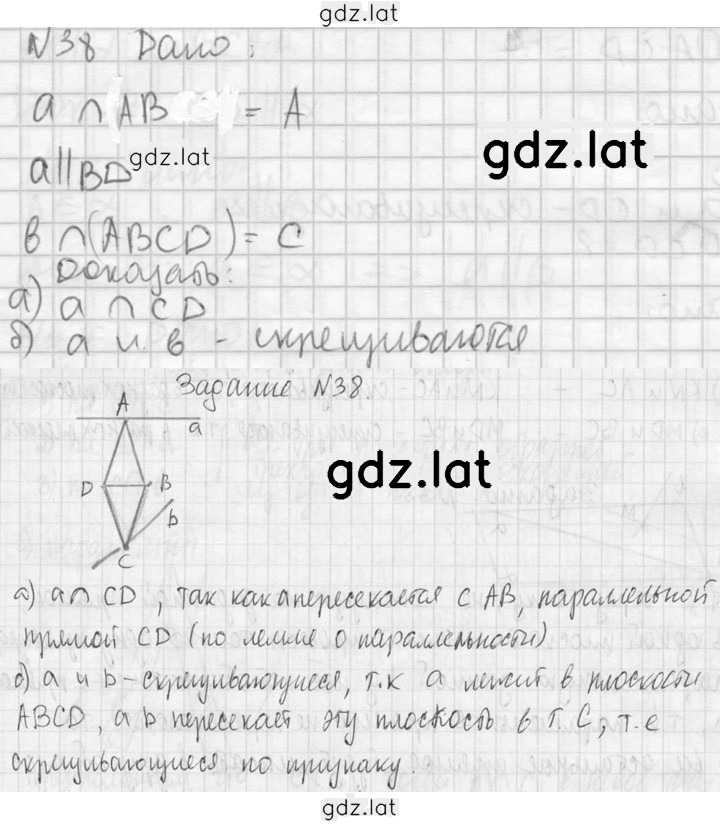 gdz.lat
N38 Дано:
a ∩ (AB = A
gdz.lat
a || BD
gdz.lat
в ∩ (ABCD) = C
Доказать:
а) a ∩ CD
б) a и в - скрещиваются
Задание N38
A
a
gdz.lat
D B
b
C
а) a ∩ CD, так как a пересекается с AB параллельной
прямой CD (по лемме о параллельности)
б) a и b - скрещивающиеся, т.к a лежит в плоскости
ABCD, а b пересекает эту плоскость в т. C, т.е
скрещивающиеся по признаку.
gdz.lat